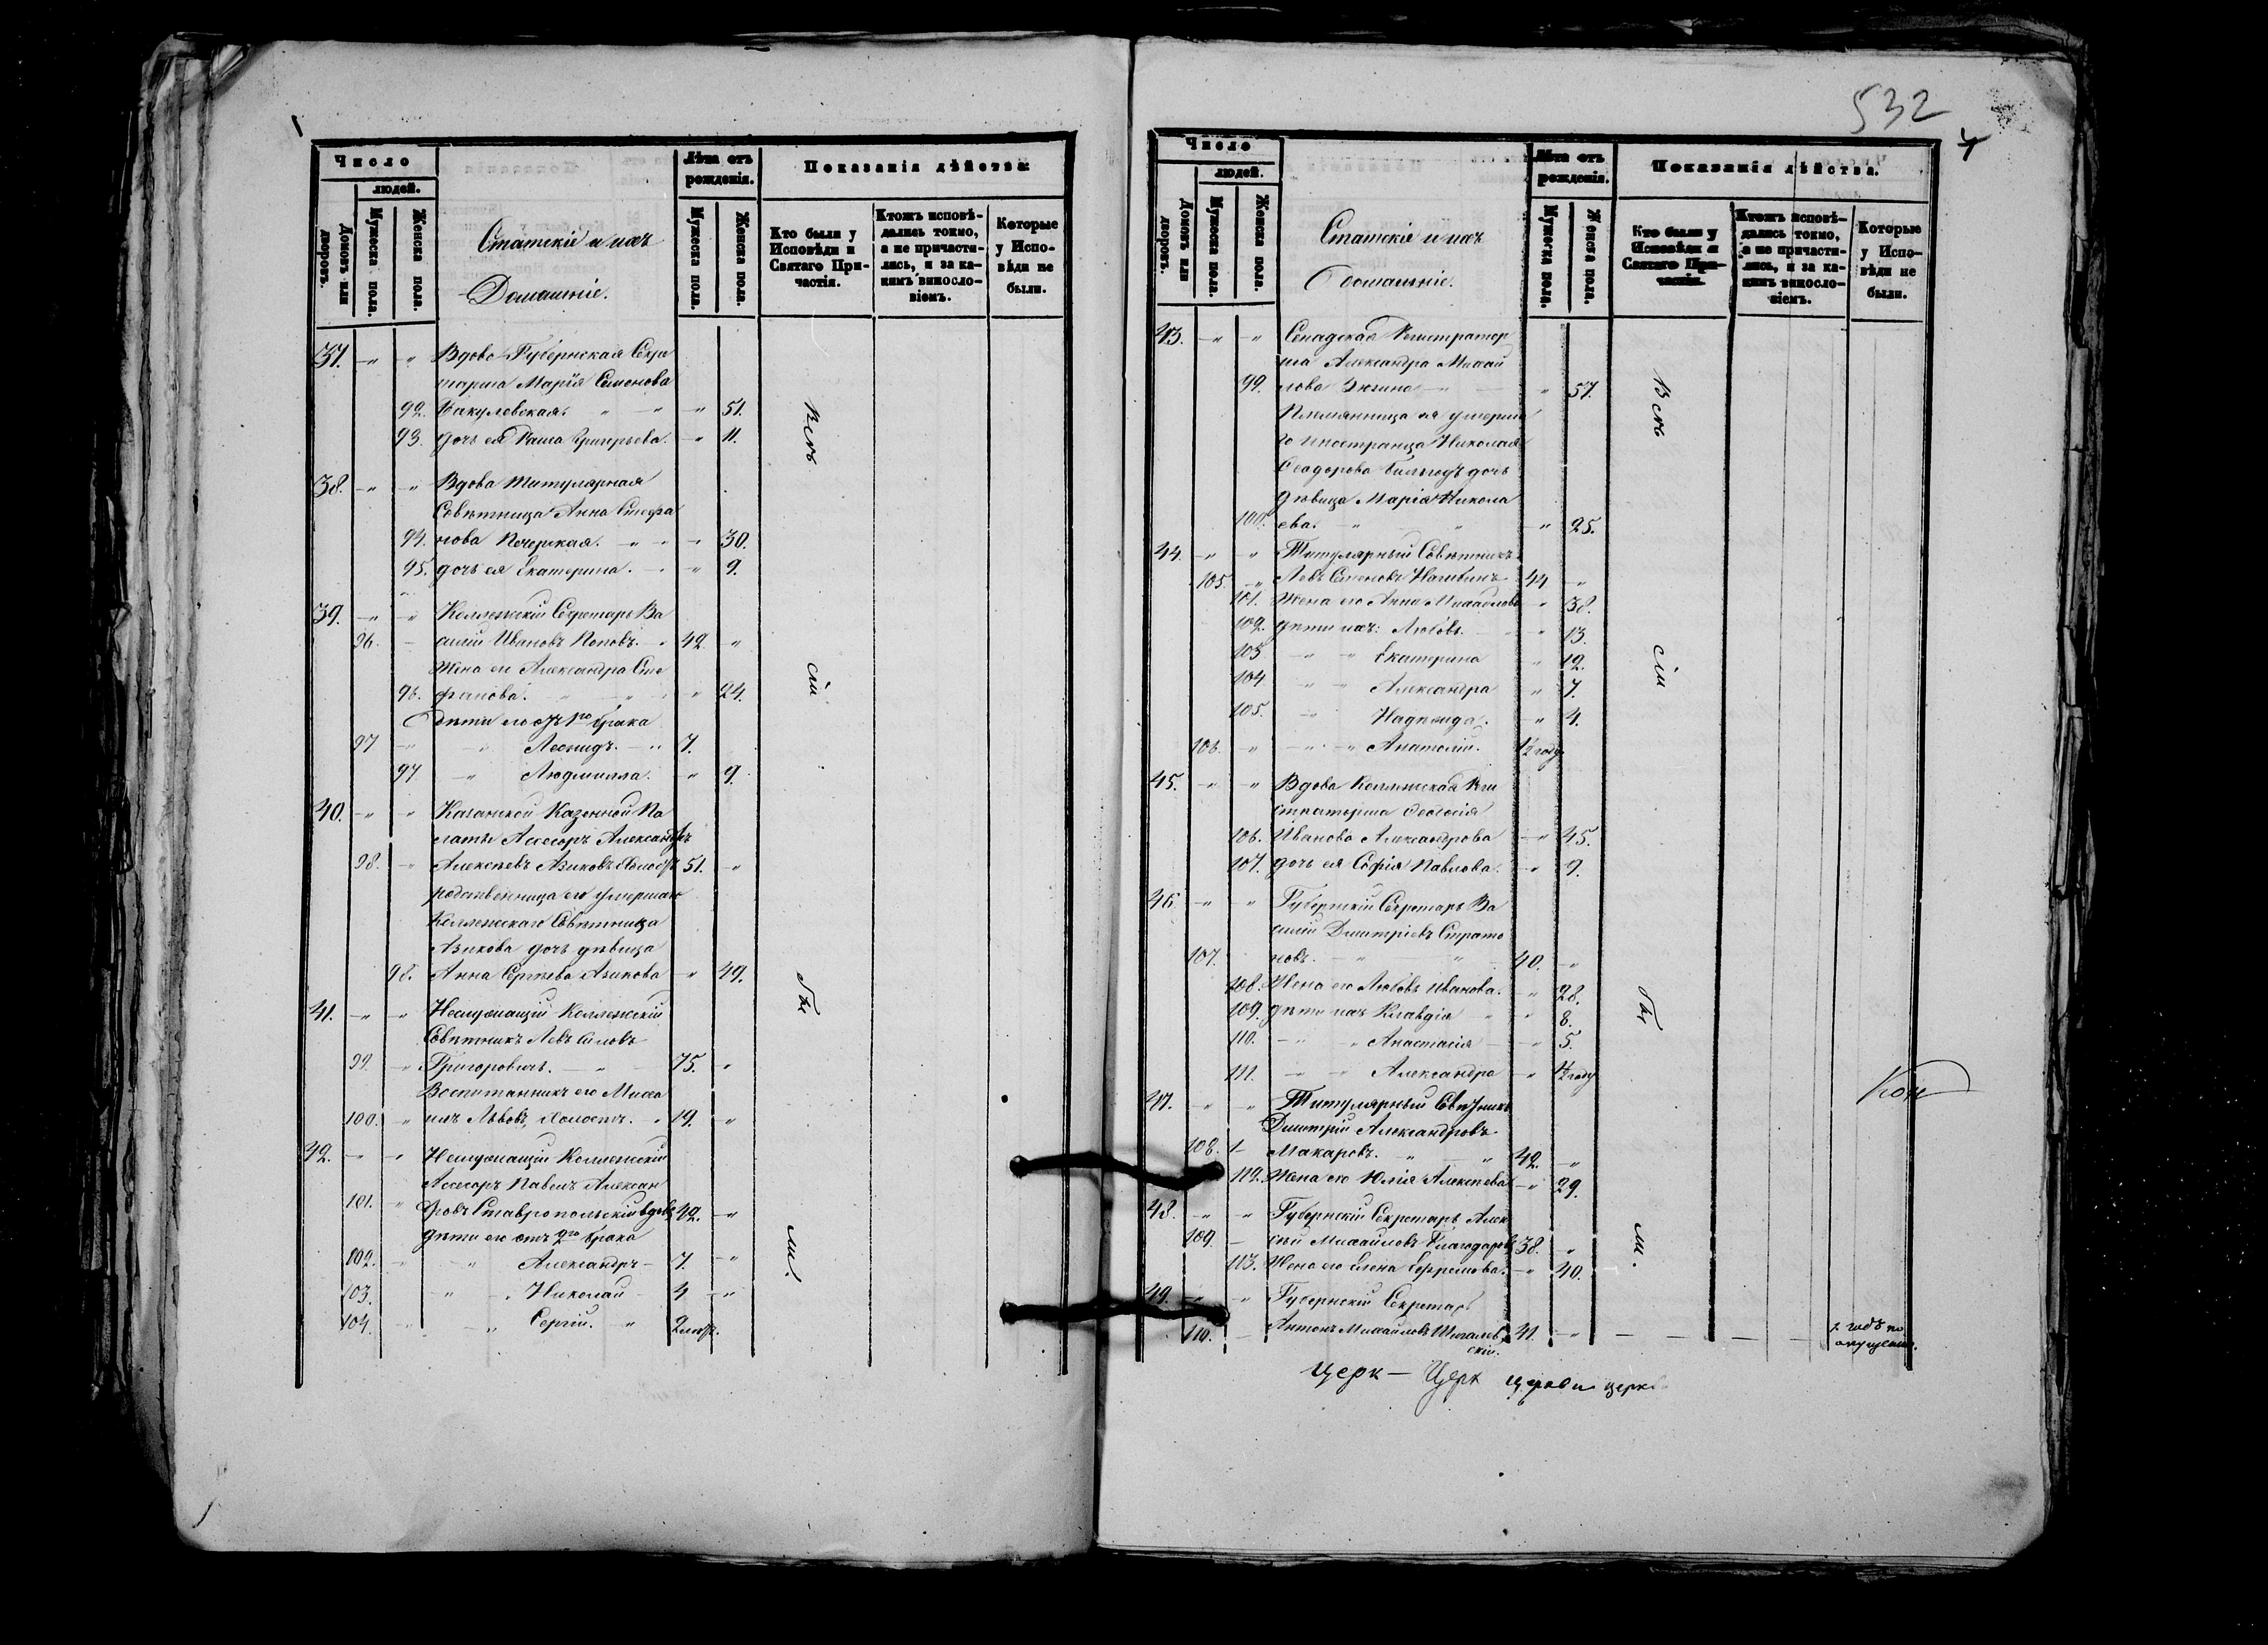 532
Число
людей.
Домовъ или дворовъ.
Мужеска пола.
Женска пола.
Статскіе и ихъ
Домашніе.
Лѣта отъ рожденія.
Мужеска пола.
Женска пола.
Показанія дѣйства
Кто были у Исповѣди и Святаго Причастія.
Ктожъ исповѣдались токмо, а не причастились, и за какимъ винословіемъ.
Которые у Исповѣди не были.
37. Вдова Губернская Секре
тарша Марія Симонова
92. Вакуловская. 51.
93. дочь ея Раиса Григорьева. 11.
38. Вдова Титулярная
Совѣтница Анна Стефа
94. нова Печерская. 30.
95. дочь ея Екатерина. 9.
39. Коллежскій Секретарь Ва
96. силій Ивановъ Поповъ. 42.
Жена его Александра Сте
96. фанова. 24.
Дѣти его отъ 1го брака
97 Леонидъ. 7.
97 Людмилла. 9.
40. Казанской Казенной Па
латы Ассесоръ Александръ
98. Алексѣевъ Азиковъ Холостъ 51.
родственница его умершаго
Коллежскаго Совѣтника
Азикова дочь дѣвица
98. Анна Сергѣева Азикова 49.
41. Неслужащій Коллежскій
Совѣтникъ Левъ Силовъ
99. Григоровичъ. 75.
Воспитанникъ его Миха
100. илъ Львовъ, Холостъ. 19.
42. Неслужащій Коллежскій
Ассесоръ Павелъ Алексан
101. дровъ Ставропольскій вдовъ 42.
дѣти его отъ 2го брака
102. Александръ 7.
103. Николай 4
104. Сергій. 2
Всѣ
сіи
бы
ли.
Число
людей.
Домовъ или дворовъ.
Мужеска пола.
Женска пола.
Статскіе и ихъ
домашніе.
Лѣта отъ рожденія.
Мужеска пола.
Женска пола.
Показанія дѣйства.
Кто были у Исповѣди и Святаго Причастія.
Ктожъ исповѣдались токмо, а не причастились, и за какимъ винословіемъ.
Которые у Исповѣди не были.
43. Сенадская Регистратор
ша Александра Михай
99. лова 57.
Племянница ея умерша
го иностранца Николая
Ѳеодорова дочь
дѣвица Марія Никола
100. ева. 25.
44. Титулярный Совѣтникъ
105. Левъ Семеновъ 44
101. Жена его Анна Михайлова 38.
102. дѣти ихъ: Любовь. 13.
103 Екатерина 12.
104 Александра 7.
105. Надежда. 4.
106. Анатолій. 1½ году
45. Вдова Коллежская Реги
страторша Ѳеодосія
106. Иванова Александрова 45.
107. дочь ея Софія Павлова. 9.
46. Губернскій Секретарь Ва
силій Дмитріевъ Страто
107. новъ. 40.
108. Жена его Любовь Иванова. 28.
109. дѣти ихъ Клавдія 8.
110. Анастасія 5.
111. Александра 1½ году
47. Титулярный Совѣтникъ
Дмитрій Александровъ
108. Макаровъ. 42.
112. Жена его Юлія Алексѣева 29.
48. Губернскій Секретарь Алек
109. сѣй Михайловъ Благодаровъ 38.
113. Жена его Елена Ефремова. 40.
49. Губернскій Секретарь
110. Антонъ Михайловъ 41.
скій.
Всѣ
сіи
бы
ли.
Кон
1. годъ по
опущенію.
Церк — Церк церкви церкв